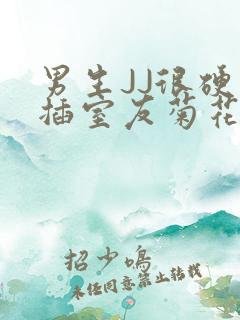 男生JJ很硬
插室友菊花
招少鸣
未经同意禁止转载